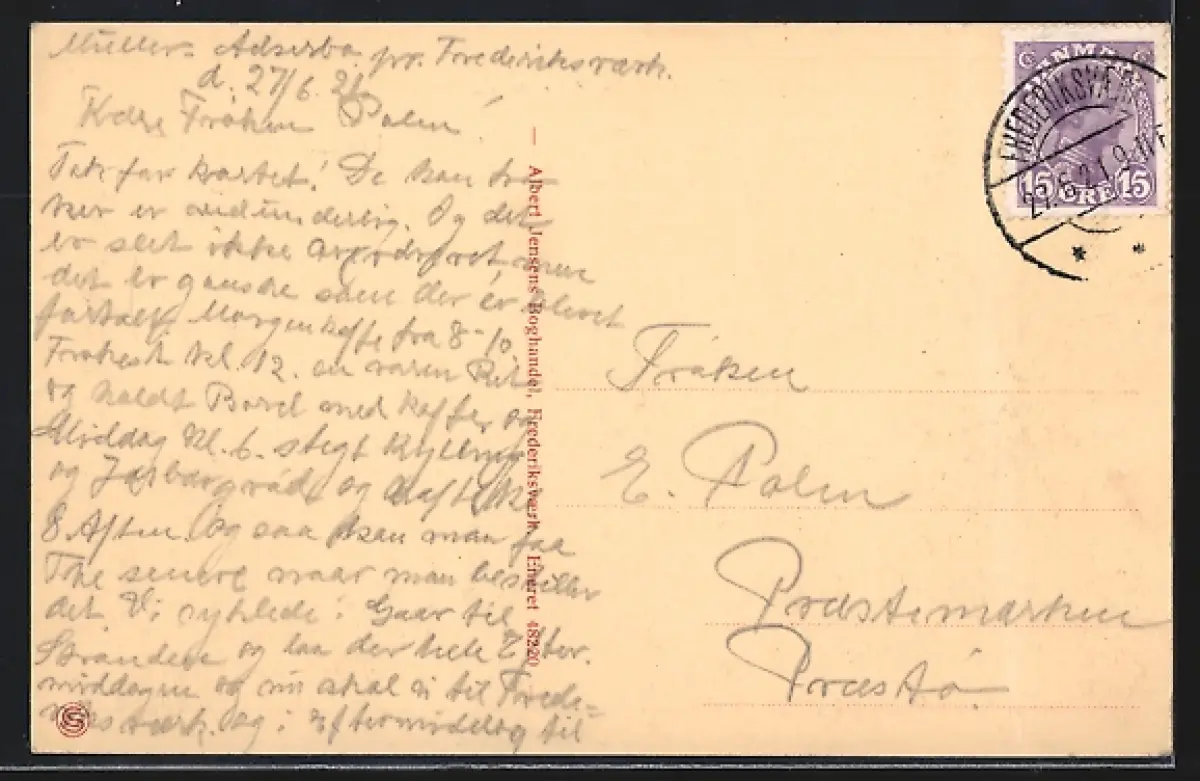 Müllers Adserbo pr. Frederiksværk.
d. 27/6. 21.
Kære Frøken Palm!
Tak for Kortet! De kan tro
her er vidunderlig. Og det
er slet ikke
det er ganske som der er blevet
fortalt. Morgenkaffe fra 8-10.
Frokost kl. 12. en varm Ret
og koldt Bord med Kaffe, og
Middag kl. 6. stegt Kylling
og Jordbærgrød, og Kaffe kl.
8 Aften og saa kan man faa
The senere naar man bestiller
det. Vi cyklede i Gaar til
Stranden og laa der hele Efter-
middagen og nu skal vi til Frede-
riksværk og i Eftermiddag til
Albert Jensens Boghandel, Frederiksværk. Eneret 48220
DANMARK
15 ØRE 15
FREDERIKSVÆRK
27.6.21.9-
Frøken
E. Palm
Præstemarken
Præstø